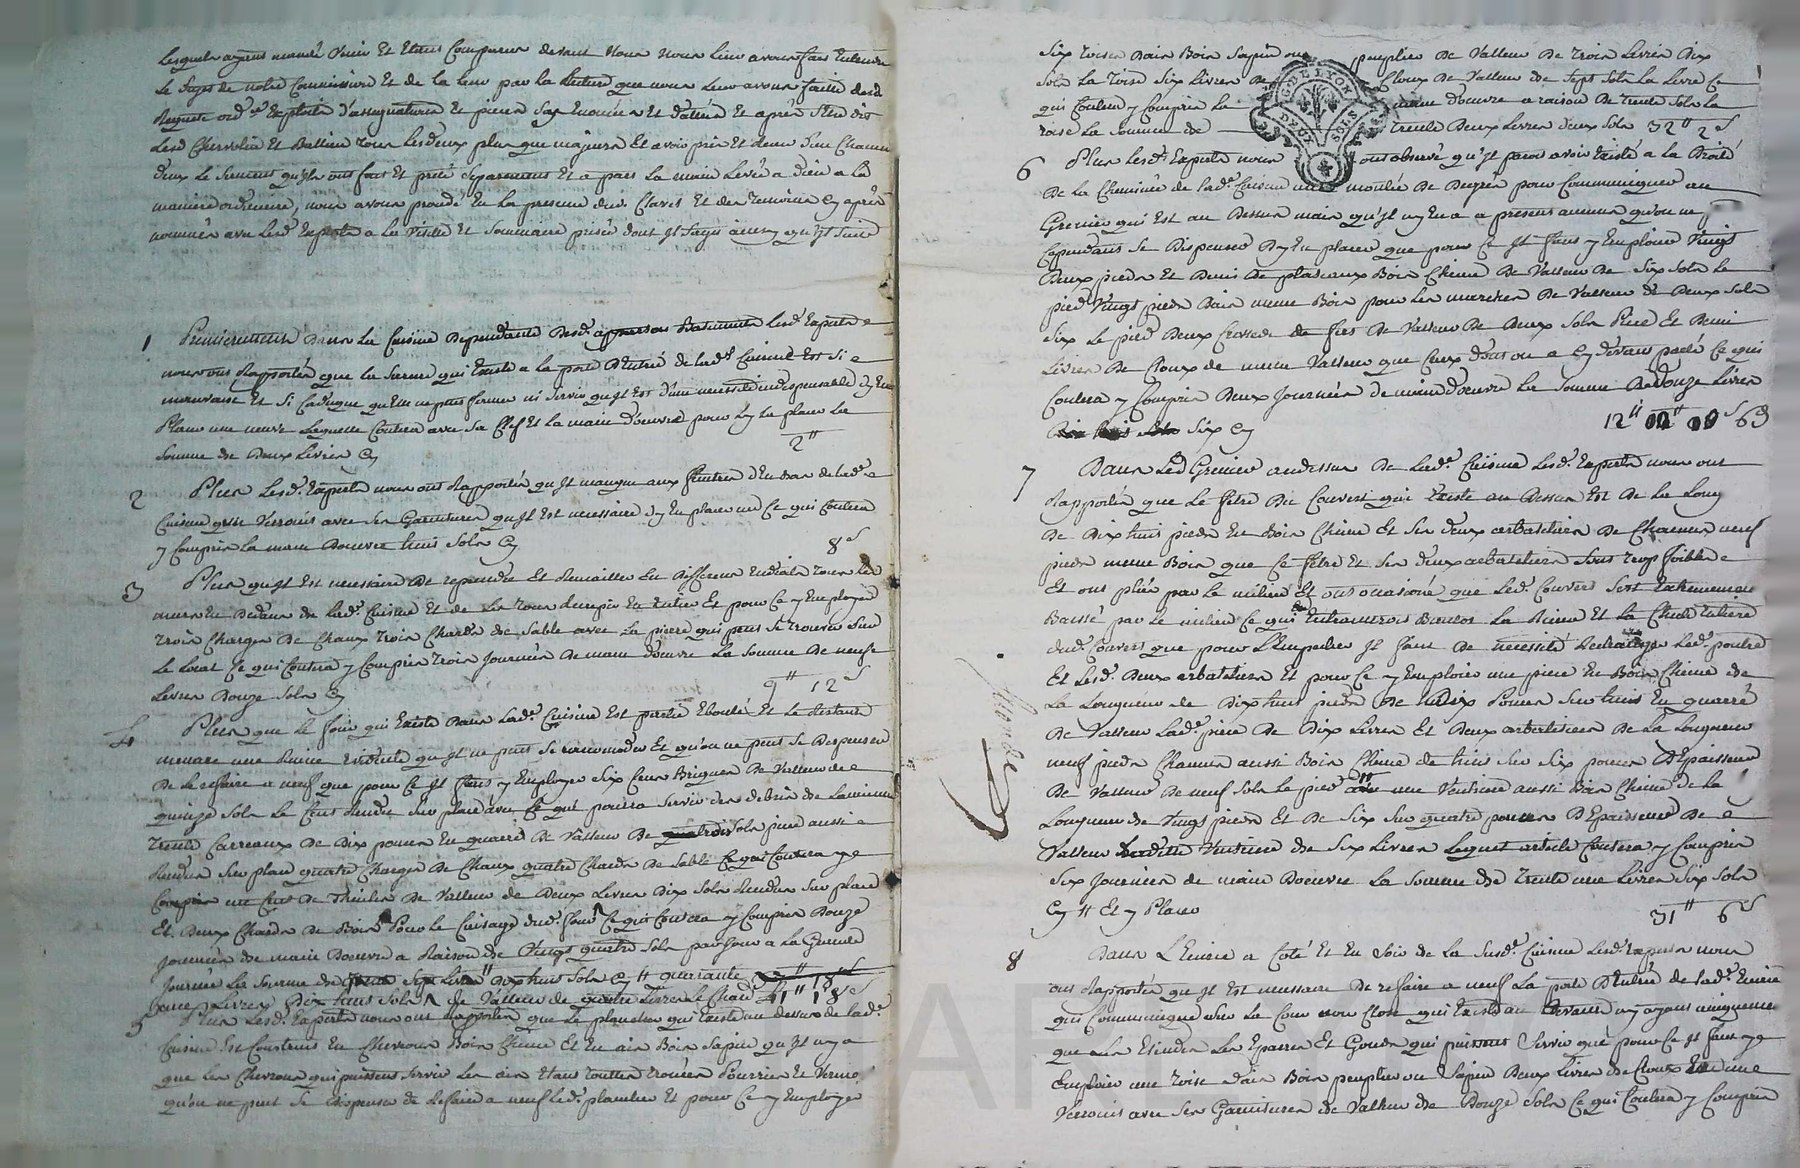 Lesquels ayant mandé venir et etant comparus devant nous nous leur avons fait entendre
le sujet de notre commission et de la leur par la lecture que nous leur avons faitte desd
Requete ord.ce Exploits d'assignations et pieces
Lesd Chervolin et Battien tous lesdeux plus que majeurs et avoir pris et receu d'un chacun
deux le serment qu'ils ont fait et preté separement et a part la main levée a dieu a la
maniere ordinaire, nous avons procedé en la presence dud. Clavel et des temoins cy après
nommés avec lesd Experts a la visite et sommaire prisée dont il s'agit ainsy qu'il suit
1 Premierement Dans la Cuisine Dependante Desd. Batiments lesd. Experts
nous ont Rapportés que la serrure qui Existe a la porte D'Entrée de lad.e Cuisine Est si
mauvaise Et si Caduque qu'Elle ne peut fermer ni servir qu'il Est d'une necessité indispensable d'y En
Placer une neuve Laquelle Coutera avec sa Clef Et la main d'oeuvre pour l'y En placer La
somme de Deux Livres Cy 2"
2 Plus Lesd. Experts nous ont Rapportés qu'il manque aux fenetres D'En bas de lad.e
Cuisine Verrouils avec ses Garnitures qu'il Est necessaire d'y En placer un Ce qui Coutera
y Compris la main Doeuvre huit sols Cy 8 s
3 Plus qu'il Est necessaire De reprendre Et Remailler En differens Endroits Tous les
murs En Dedans de lad.e Cuisine Et de les tous Recrepir En Entier Et pour Ce y Employer
Trois Charges De Chaux Trois Chards de sable avec la pierre qui peut se trouver sur
le Local Ce qui Coutera y Compris Trois Journées De main d'oeuvre La somme De neuf
Livres Douze sols Cy 9" 12 s
4 Plus que le four qui Existe Dans Lad.e Cuisine Est partie Eboulé Et le Restant
menace une Ruine Evidente qu'il ne peut se racommoder Et qu'on ne peut se Dispenser
De le refaire a neuf que pour Ce il faut y Employer six Cens Briques De Valleur de
quinze sols le Cent Rendu sur place avec Ce qui pourra servir des debris de l'ancienne
Trente Carreaux de Dix pouces En quarré De Valleur De sols piece aussi
Rendus sur place quatre Charges De Chaux quatre Chards De sable Ce qui Coutera y
Compris un Cent De Thuiles De Valleur de Deux Livres Dix sols Rendus sur place
Et Deux Chards De Bois Pour le Cuisage dud. four Ce qui Coutera y Compris Douze
Journées de main Doeuvre a Raison de Vingt quatre sols par Jour a la Grande
Journée La somme de Trente Sept Livres Dix huit sols Cy " quarante 37" 18 s
une Livres Dix huit sols de Valleur de quatre Livres le Chard 41" 18 s
5 Plus Lesd. Experts nous ont Rapportés que le plancher qui Existe au dessus de lad.e
Cuisine Est Construit En Chevrons Bois Chene Et En ais Bois sapin qu'il n'y a
que les Chevrons qui puissent servir les ais Etant touttes trouées Pourries Et Vermo
qu'on ne peut se dispenser de Refaire a neuf led. plancher Et pour Ce y Employer
Six toises Dais Bois Sapin ou peuplier De Valleur De Trois Livres Dix
Sols La Toise Six Livres De Cloux De Valleur de Sept Sols La Livre Ce
qui Coutera y Compris La main d'oeuvre a raison De Trente Sols La
toise La Somme de Trente Deux Livres Deux Sols 32" 2 s
GUE LYON
DEUX SOLS
6 Plus Lesd. Experts nous ont observé qu'il parait avoir Existé a la Droite
De la Cheminée de lad.e Cuisine une montée De Degrés pour Communiquer au
Grenier qui Est au Dessus mais qu'il n'y En a a present aucuns qu'on ne peut
Cependant se Dispenser D'y En placer que pour Ce il faut y Emploier Vingt
Deux pieds Et Demi De plateaux Bois Chene De Valleur De Six Sols le
pied Vingt pieds Dais meme Bois pour Les marches De Valleur De Deux Sols
Six le pied Deux de fert De Valleur De Deux Sols Piece Et Demi
Livre De Cloux de meme Valleur que Ceux dont on a Cy devant parlé Ce qui
Coutera y Compris Deux Journées de main d'oeuvre La somme De Douze Livres
Six Cy 12" 6 d
7 Dans Led Grenier audessus De Lad.e Cuisine Lesd. Experts nous ont
Rapportés que Le fetre Du Couvert qui Existe au Dessus Est De La Long
De Dix huit pieds En Bois Chene Et Ses deux arbatetiers De Chacun neuf
pieds meme Bois que Ce fetre Et Ses deux arbatetiers Sont trop foibles
Et ont pliés par le milieu Et ont occasioné que Led. Couvert S'est Extremement
Baissé par le milieu Ce qui Entrainerois Bientot La Ruine Et la Chute Entiere
dud. Couvert que pour L'Empecher il faut De necessité Rechanger Led. poutre
Et Lesd. Deux arbatetiers Et pour Ce y Emploier une piece En Bois Chene de
La Longueur de Dix huit pieds De Dix Pouces Sur huit En quarré
De Valleur Lad.e piece De Dix Livres Et Deux arbatetiers De La Longueur
neuf pieds Chacun aussi Bois Chene de huit Sur Six pouces D'Epaisseur
De Valleur De neuf Sols Le pied une aussi Bois Chene de la
Longueur de Vingt pieds Et De Six Sur quatre pouces D'Epaisseur De
Valleur de Six Livres Lequel article Coutera y Compris
Six Journées de main Doeuvre La Somme De Trente une Livres Six Sols
Cy " Et y Placer 31" 6 s
8 Dans L'Ecurie a Coté Et En Soir de La Susd.e Cuisine Lesd. Experts nous
ont Rapportés qu'il Est necessaire De refaire a neuf La porte D'Entrée de lad.e Ecurie
qui Communique Sur Le Cour non Close qui Existe au Devant n'y ayant uniquement
que Les Eparres Et Gonds qui puissent Servir que pour Ce il faut y
Emploier une Toise Dais Bois peuplier ou Sapin Deux Livres de Cloux Et une
Verrouis avec Ses Garnitures De Valleur De Douze Sols Ce qui Coutera y Compris